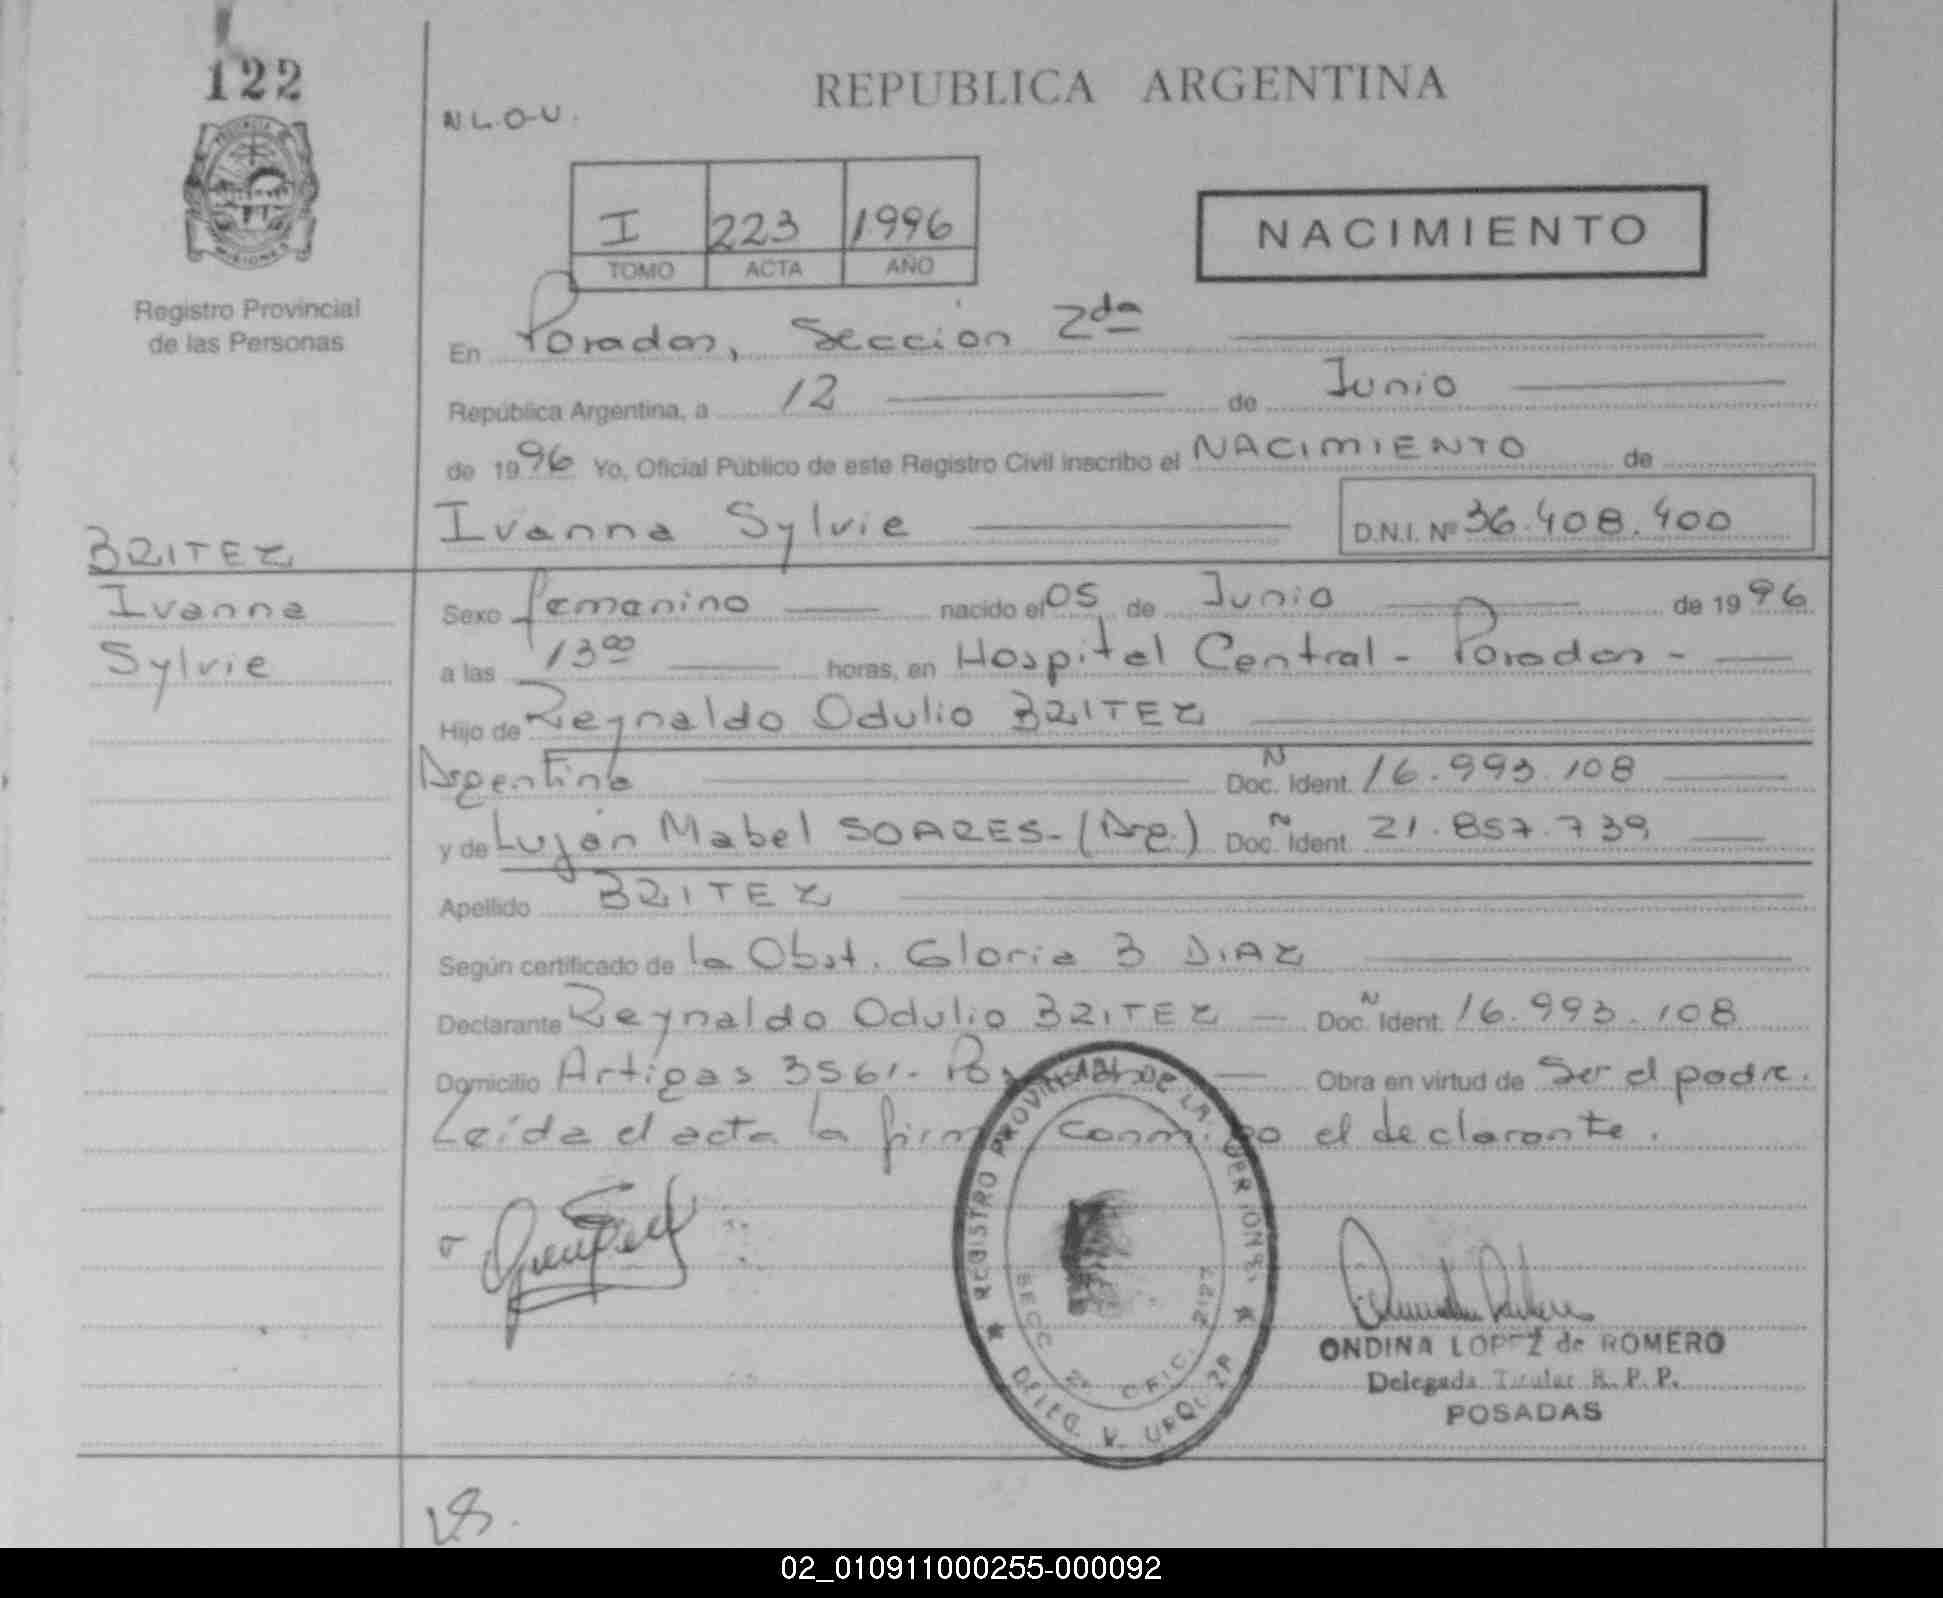 122
REPUBLICA ARGENTINA
N L.O.U.
PROVINCIA DE
MISIONES
I 223 1996
TOMO ACTA AÑO
NACIMIENTO
Registro Provincial
de las Personas
En Posadas, Sección 2da
República Argentina, a 12 de Junio
de 1996 Yo, Oficial Público de este Registro Civil inscribo el NACIMIENTO de
Ivanna Sylvie D.N.I. Nº 36.408.400
BRITEZ
Ivanna
Sylvie
Sexo femenino nacido el 05 de Junio de 1996
a las 13 00 horas, en Hospital Central - Posadas -
Hijo de Reynaldo Odulio BRITEZ
Argentino Doc. N Ident. 16.993.108
y de Luján Mabel SOARES - (Arg.) Doc. N Ident. 21.857.739
Apellido BRITEZ
Según certificado de la Obst. Gloria B DIAZ
Declarante Reynaldo Odulio BRITEZ - Doc. N Ident. 16.993.108
Domicilio Artigas 3561. Obra en virtud de Ser el padre.
Leída el acta la firma conmigo el declarante.
REGISTRO PROVINCIAL DE LAS PERSONAS
SECC 2ª OFIC. 2127
DELEG. V. URQUIZA
ONDINA LOPEZ de ROMERO
Delegada Titular R. P. P.
POSADAS
02_010911000255-000092